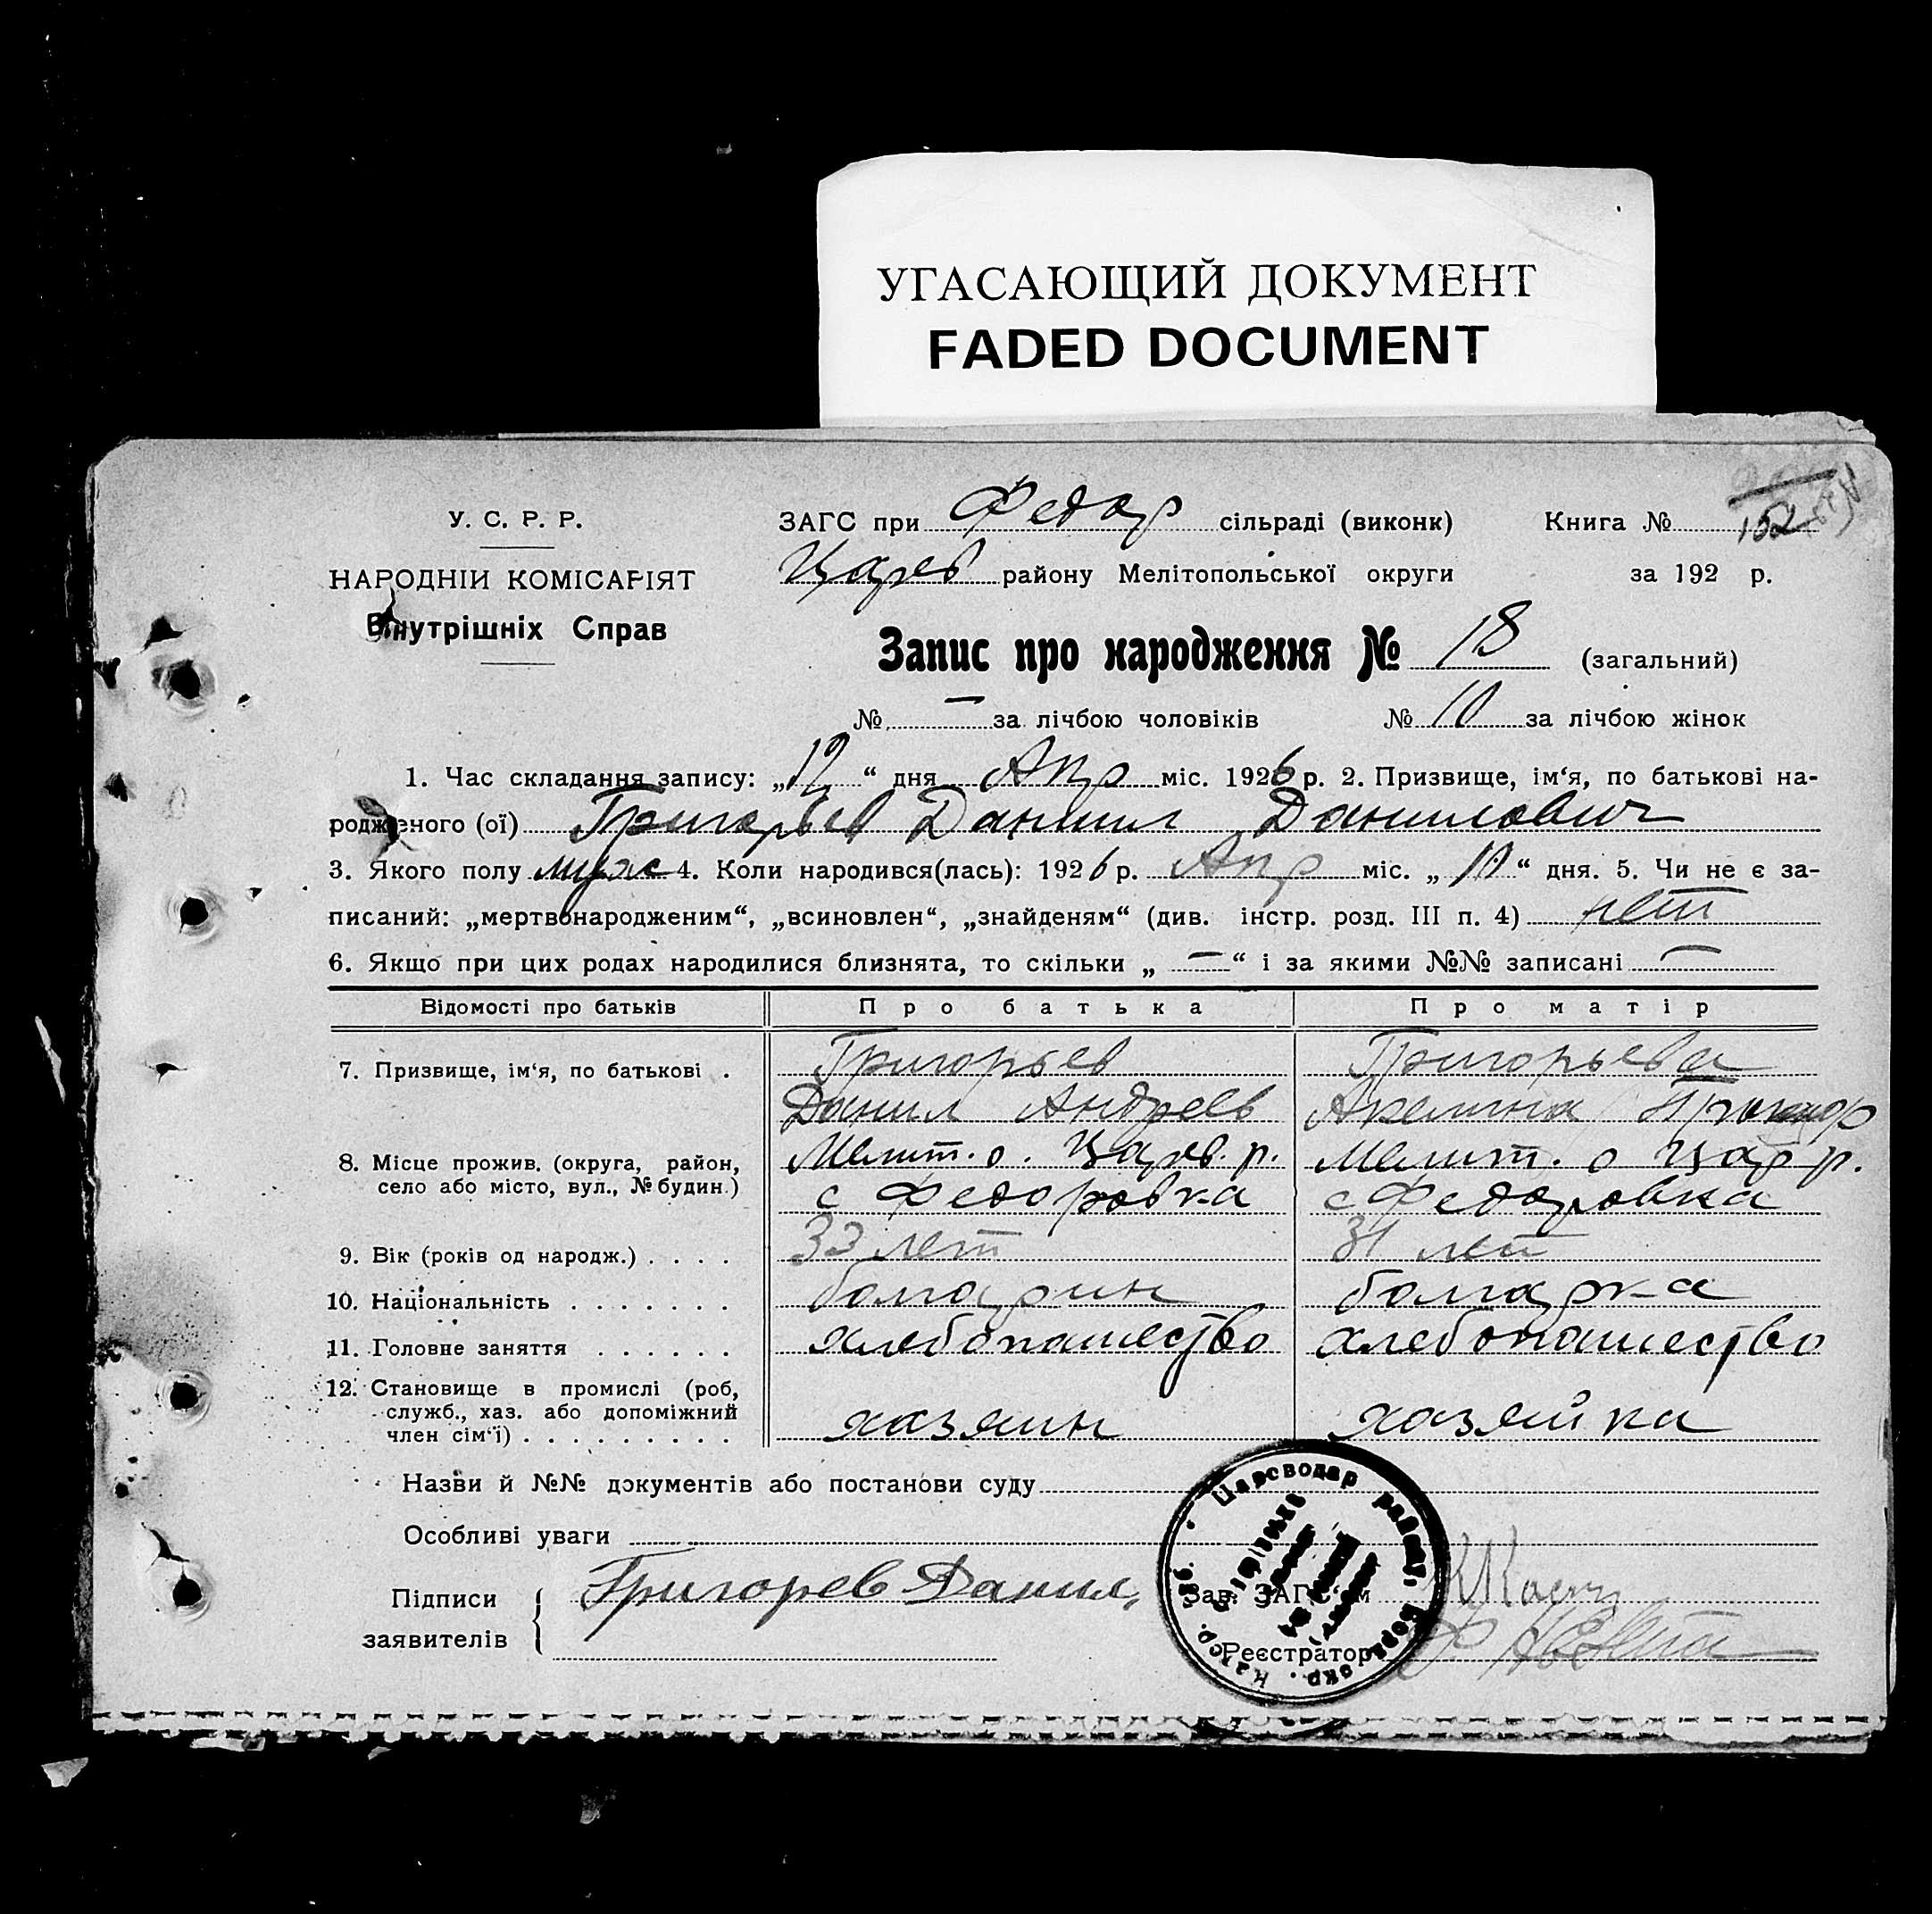 УГАСАЮЩИЙ ДОКУМЕНТ
FADED DOCUMENT
У. С. Р. Р.
НАРОДНІИ КОМІСАРІЯТ
Внутрішніх Справ
ЗАГС при Федор сільраді (виконк) Книга № 152
Царев району Мелітопольської округи за 192 р.
Запис про народження № 18 (загальний)
№ — за лічбою чоловіків № 10 за лічбою жінок
1. Час складання запису: „12“ дня Апр міс. 1926 р. 2. Призвище, ім‘я, по батькові на-
родженого (ої) Григорьев Данил Данилович
3. Якого полу муж 4. Коли народився(лась): 1926 р. Апр міс. „10“ дня. 5. Чи не є за-
писаний: „мертвонародженим“, „всиновлен“, „знайденям“ (див. інстр. розд. III п. 4) нет
6. Якщо при цих родах народилися близнята, то скільки „ — “ і за якими №№ записані —
Відомості про батьків Про батька Про матір
7. Призвище, ім‘я, по батькові . Григорьев Григорьева
Данил Андреев Акелина
8. Місце прожив. (округа, район, Мелит. о. Царев. р. Мелит. о Цар р.
село або місто, вул., № будин.) с Федоровка с Федоровка
9. Вік (років од народж.) . . . . 33 лет 31 лет
10. Національність . . . . . . . болгарин болгарка
11. Головне заняття . . . . . . хлебопашество хлебопашество
12. Становище в промислі (роб,
служб., хаз. або допоміжний хазяин хазяйка
член сім‘ї) . . . . . . . . .
Назви й №№ документів або постанови суду
Особливі уваги
Підписи Григорев Данил, Зав. ЗАГС‘ом
заявителів Реєстратор
Царєводар район